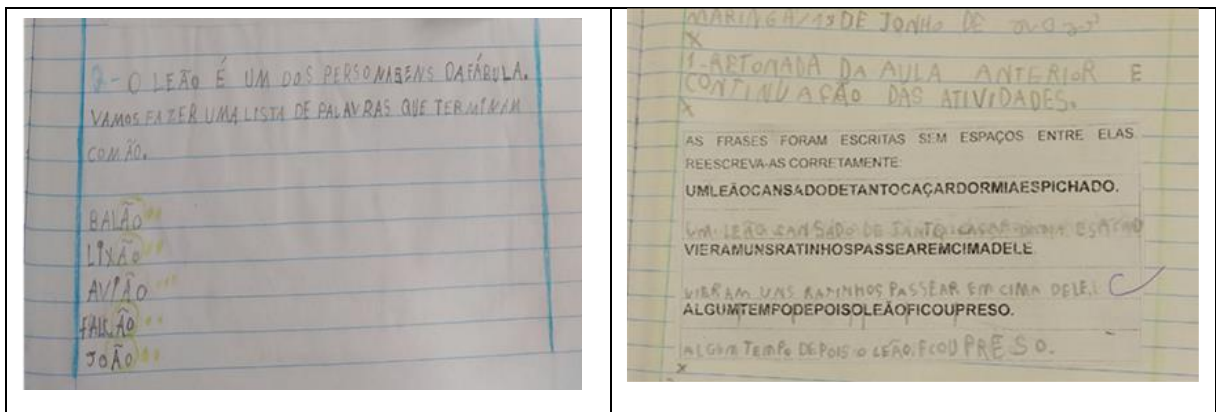 2- O LEÃO É UM DOS PERSONAGENS DA FÁBULA.
VAMOS FAZER UMA LISTA DE PALAVRAS QUE TERMINAM
COM ÃO.
BALÃO
LIXÃO
AVIÃO
FALCÃO
JOÃO
MARINGÁ/13 DE JONHO DE
X
1-RETOMADA DA AULA ANTERIOR E
CONTINUAÇÃO DAS ATIVIDADES.
X
AS FRASES FORAM ESCRITAS SEM ESPAÇOS ENTRE ELAS
REESCREVA-AS CORRETAMENTE:
UMLEÃOCANSADODETANTOCAÇARDORMIAESPICHADO.
UM LEÃO CANSADO DE TANTO CAÇAR DORMIA
VIERAMUNSRATINHOSPASSEAREMCIMADELE
VIERAM UNS RATINHOS PASSEAR EM CIMA DELE.
ALGUMTEMPODEPOISOLEÃOFICOUPRESO.
ALGUM TEMPO DEPOIS O LEÃO FICOU PRESO.
X